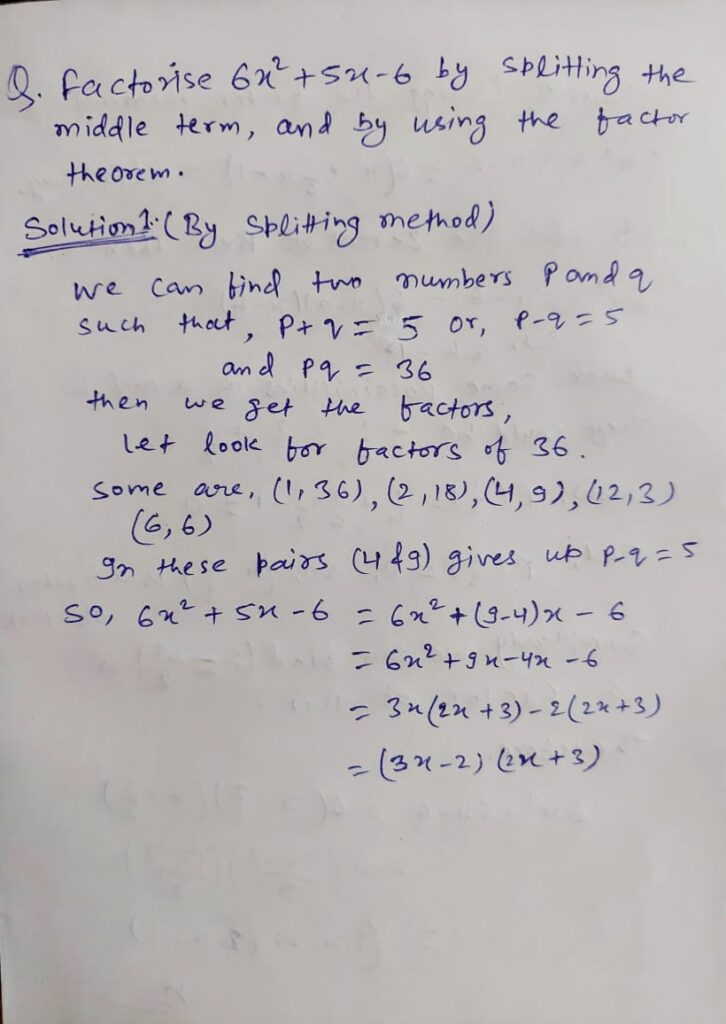 Q. Factorise 6x² + 5x - 6 by splitting the
middle term, and by using the factor
theorem.
Solution 1: (By Splitting method)
we can find two numbers P and q
such that, P + q = 5 or, P - q = 5
and pq = 36
then we get the factors,
let look for factors of 36.
some are, (1, 36), (2, 18), (4, 9), (12, 3)
(6, 6)
In these pairs (4 & 9) gives us P-q = 5
So, 6x² + 5x - 6 = 6x² + (9-4)x - 6
= 6x² + 9x - 4x - 6
= 3x(2x + 3) - 2(2x + 3)
= (3x - 2) (2x + 3)